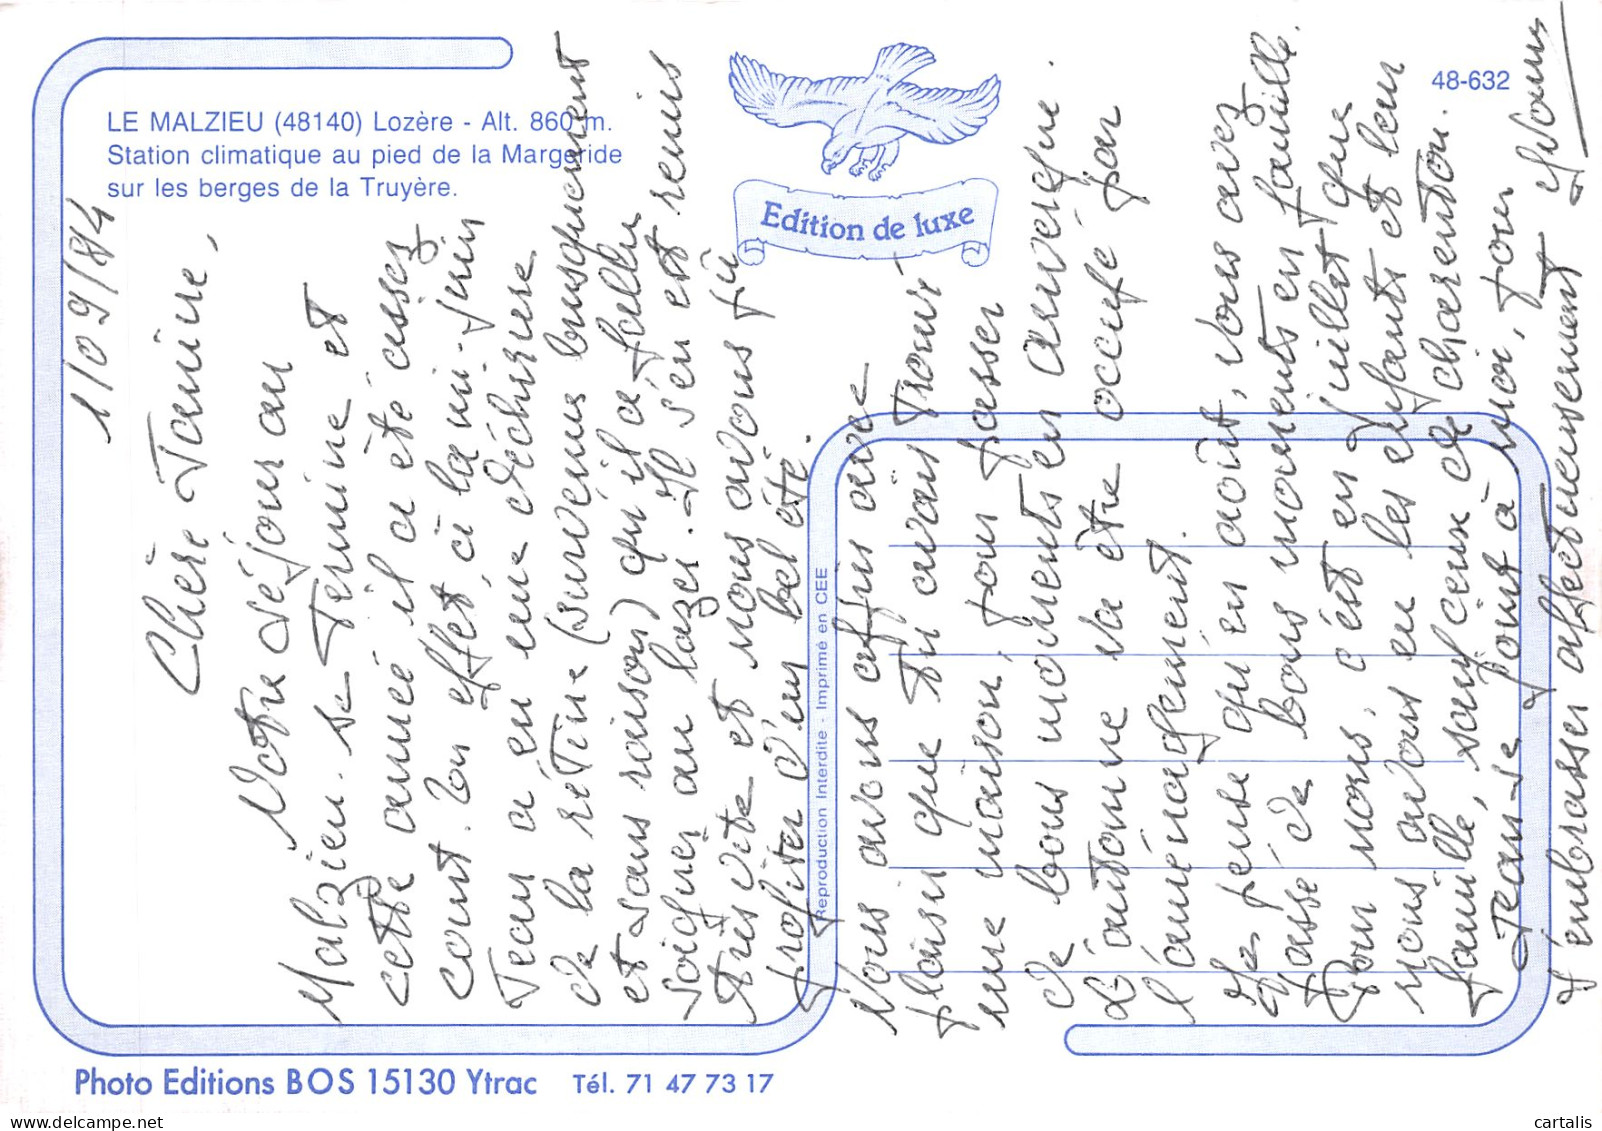 LE MALZIEU (48140) Lozère - Alt. 860 m.
Station climatique au pied de la Margeride
sur les berges de la Truyère.
Edition de luxe
48-632
1/09/84
Chère Janine,
Votre séjour au
Malzieu se termine et
cette année il a été assez
court. En effet, à la mi-juin
Jean a eu une déchirure
de la rétine (survenue brusquement
et sans raison) qu'il a fallu
soigner au lazer. Il s'en est remis
très vite et nous avons pû
profiter d'un bel été.
Nous avons appris avec
plaisir que tu avais trouvé
une maison, pour passer
de bons moments en auvergne.
L'automne va être occupé par
l'aménagement.
Je pense qu'en août, vous avez
passé de bons moments en famille.
Pour nous, c'est en juillet que
nous avons eu les enfants et leur
famille, sauf ceux de charenton.
Jean se joint à moi, pour
t'embrasser affectueusement Yvonne
Reproduction Interdite - Imprimé en CEE
Photo Editions BOS 15130 Ytrac Tél. 71 47 73 17
cartalis